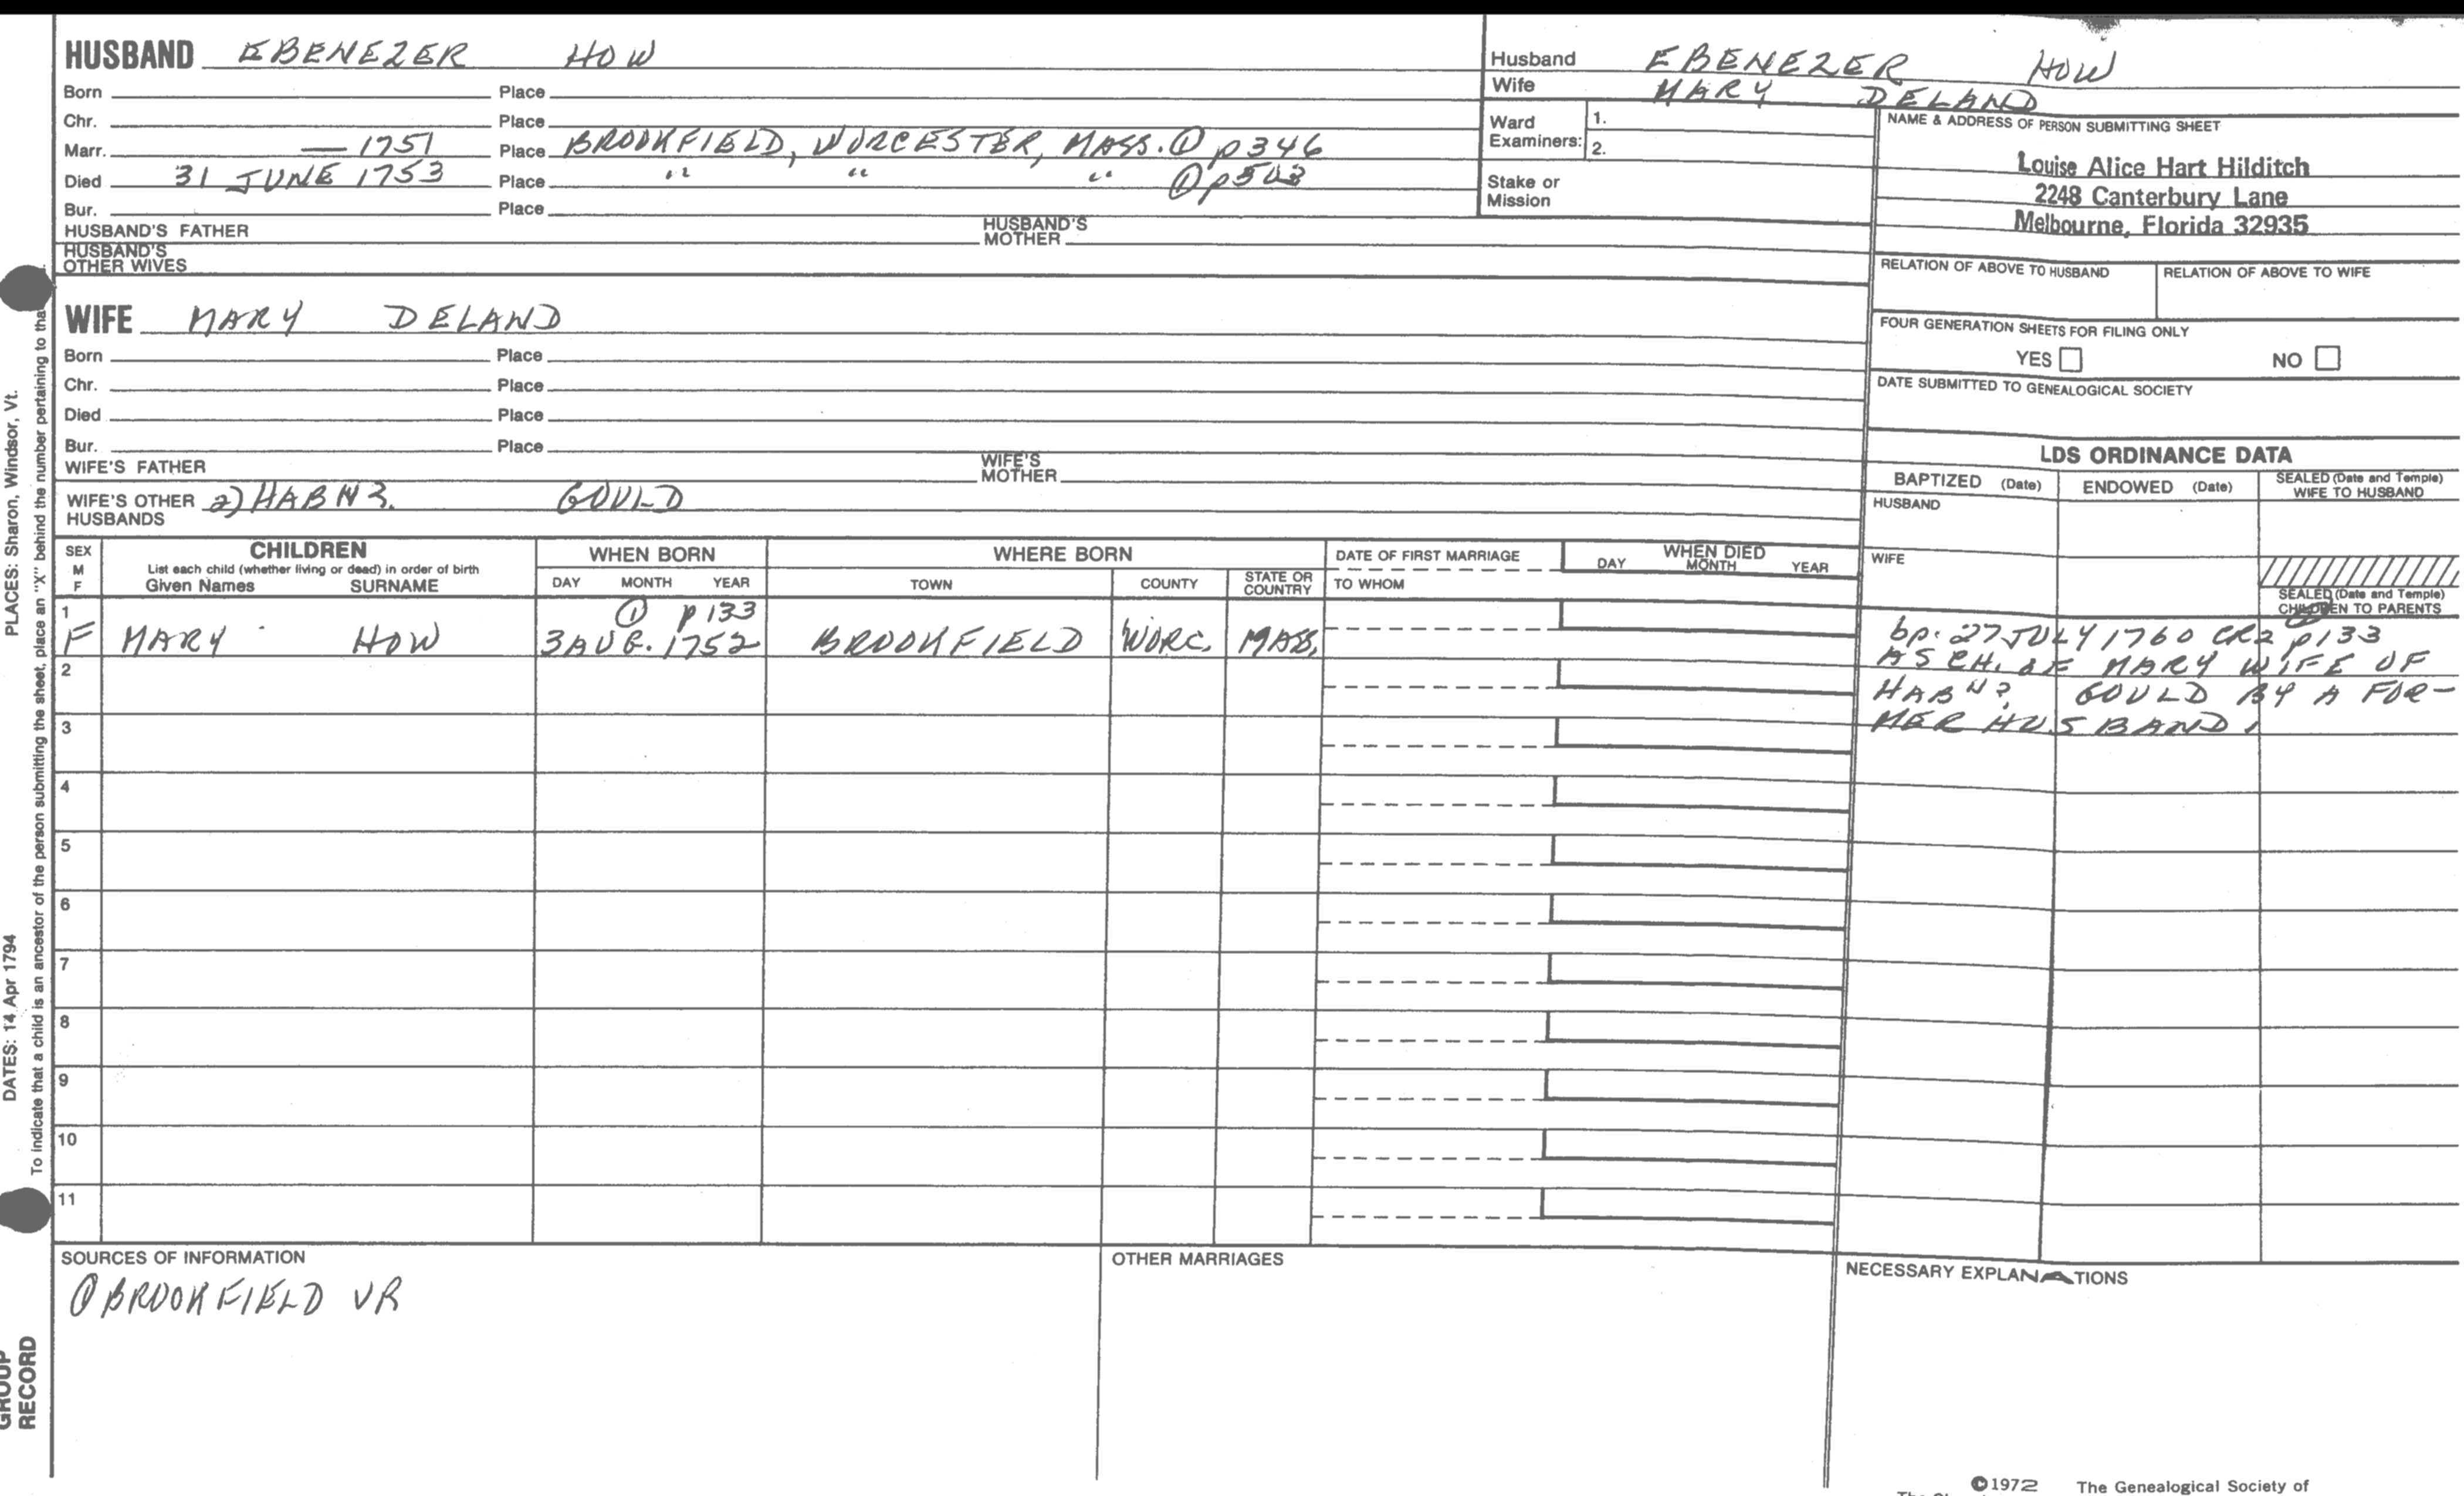 HUSBAND EBENEZER HOW
Born Place
Chr. Place
Marr. — 1751 Place BROOKFIELD, WORCESTER, MASS. ① p346
Died 31 JUNE 1753 Place " " " ①
Bur. Place
HUSBAND'S FATHER HUSBAND'S MOTHER
HUSBAND'S OTHER WIVES
Husband EBENEZER HOW
Wife MARY DELAND
Ward Examiners: 1.
2.
Stake or Mission
NAME & ADDRESS OF PERSON SUBMITTING SHEET
Louise Alice Hart Hilditch
2248 Canterbury Lane
Melbourne, Florida 32935
RELATION OF ABOVE TO HUSBAND RELATION OF ABOVE TO WIFE
FOUR GENERATION SHEETS FOR FILING ONLY
YES NO
DATE SUBMITTED TO GENEALOGICAL SOCIETY
WIFE MARY DELAND
Born Place
Chr. Place
Died Place
Bur. Place
WIFE'S FATHER WIFE'S MOTHER
WIFE'S OTHER HUSBANDS 2) GOULD
LDS ORDINANCE DATA
BAPTIZED (Date) ENDOWED (Date) SEALED (Date and Temple) WIFE TO HUSBAND
HUSBAND
WIFE
SEALED (Date and Temple) CHILDREN TO PARENTS
SEX M F CHILDREN WHEN BORN WHERE BORN DATE OF FIRST MARRIAGE WHEN DIED
List each child (whether living or dead) in order of birth
Given Names SURNAME DAY MONTH YEAR TOWN COUNTY STATE OR COUNTRY TO WHOM DAY MONTH YEAR
1 ① p 133
F MARY HOW 3 AUG. 1752 BROOKFIELD WORC. MASS.
bp. 27 JULY 1760 CR2 p133
AS CH. OF MARY WIFE OF
GOULD BY A FOR-
MER HUSBAND.
2
3
4
5
6
7
8
9
10
11
SOURCES OF INFORMATION
① BROOKFIELD VR
OTHER MARRIAGES
NECESSARY EXPLANATIONS
©1972 The Genealogical Society of
PLACES: Sharon, Windsor, Vt.
DATES: 14 Apr 1794
To indicate that a child is an ancestor of the person submitting the sheet, place an "X" behind the number pertaining to
GROUP
RECORD